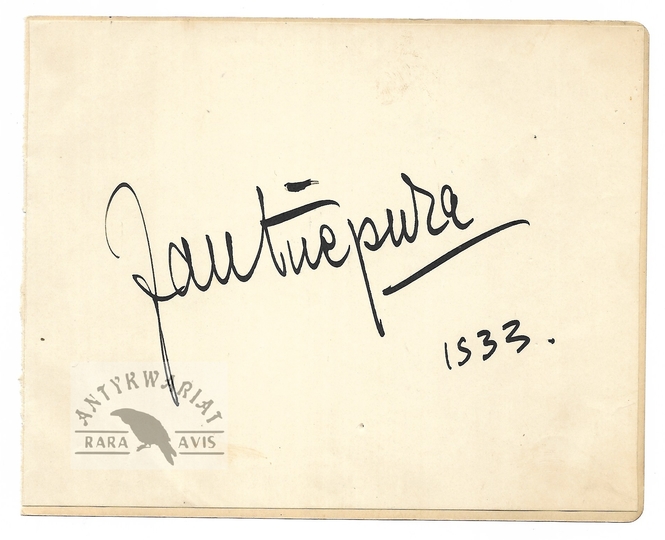 Jan Kiepura
1933.
ANTYKWARIAT
RARA AVIS